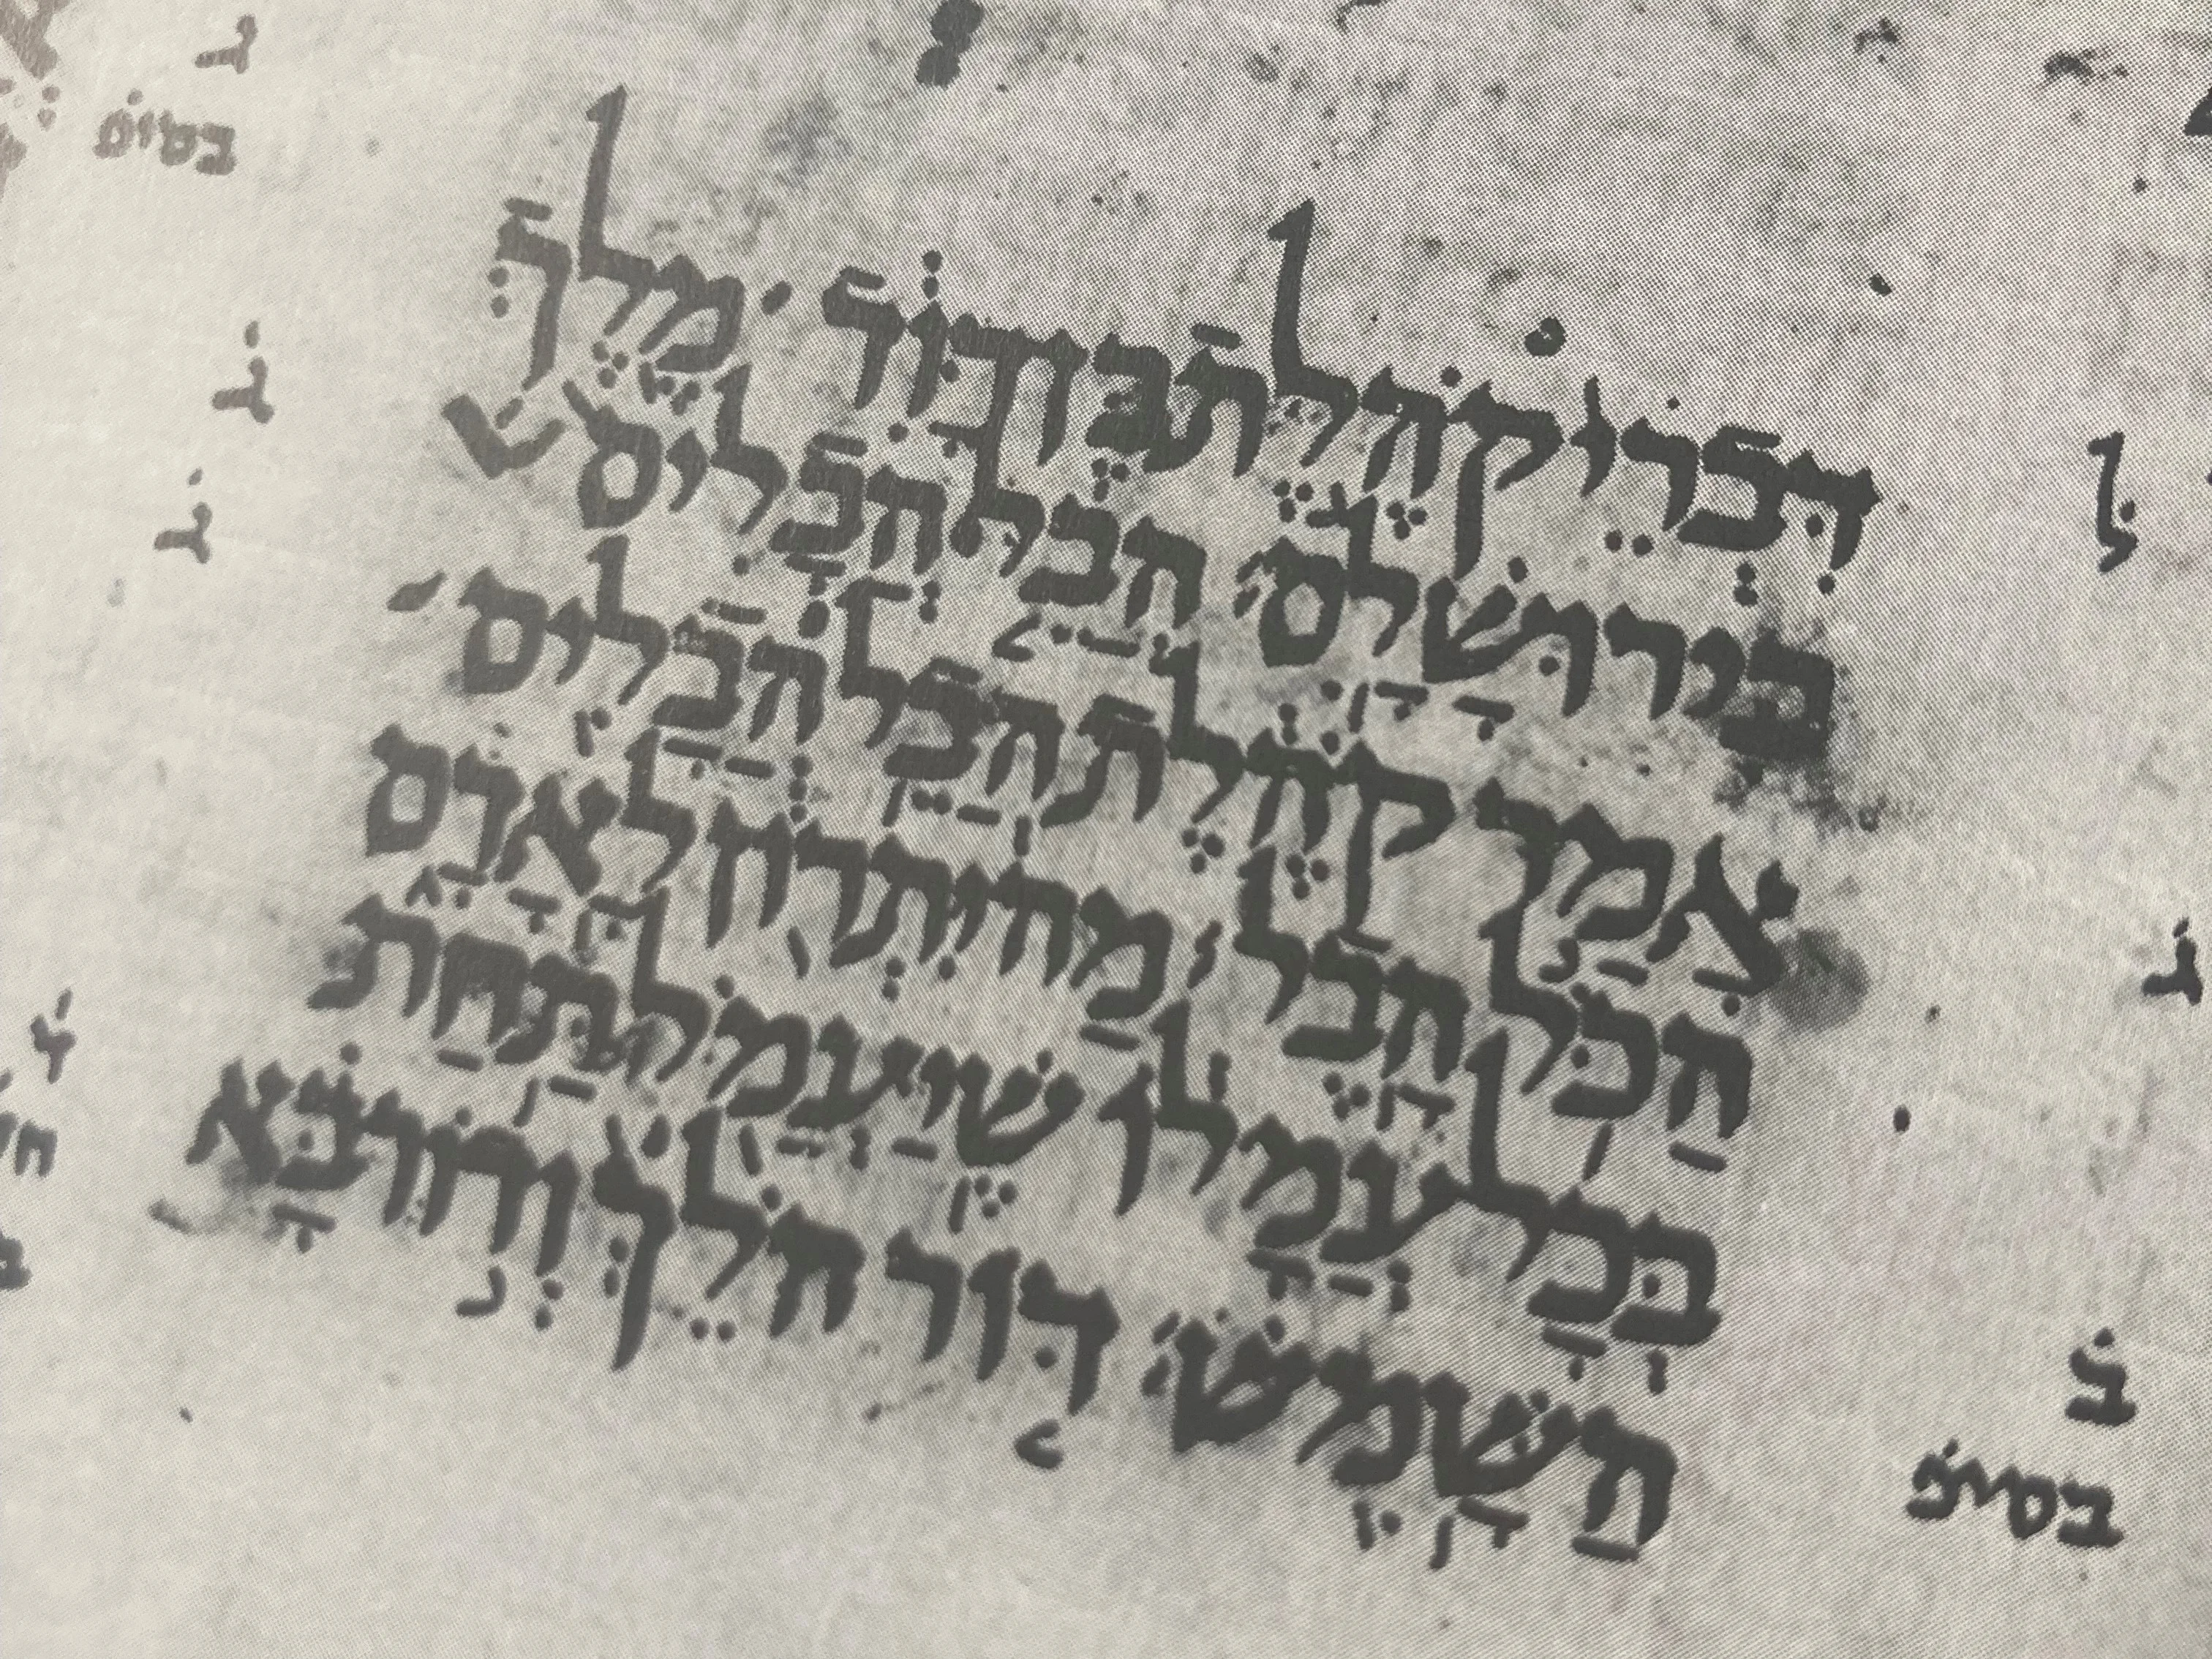 דִּבְרֵי֙ קֹהֶ֣לֶת בֶּן־דָּוִ֔ד מֶ֖לֶךְ
בִּירוּשָׁלִָֽם׃ הֲבֵ֤ל הֲבָלִים֙
אָמַ֣ר קֹהֶ֔לֶת הֲבֵ֥ל הֲבָלִ֖ים
הַכֹּ֥ל הָֽבֶל׃ מַה־יִּתְר֖וֹן לָֽאָדָ֑ם
בְּכָל־עֲמָל֔וֹ שֶֽׁיַּעֲמֹ֖ל תַּ֥חַת
הַשָּֽׁמֶשׁ׃ דּ֤וֹר הֹלֵךְ֙ וְד֣וֹר בָּ֔א
ל
בסיפ
ל
ל
ל
ב
בסיפ